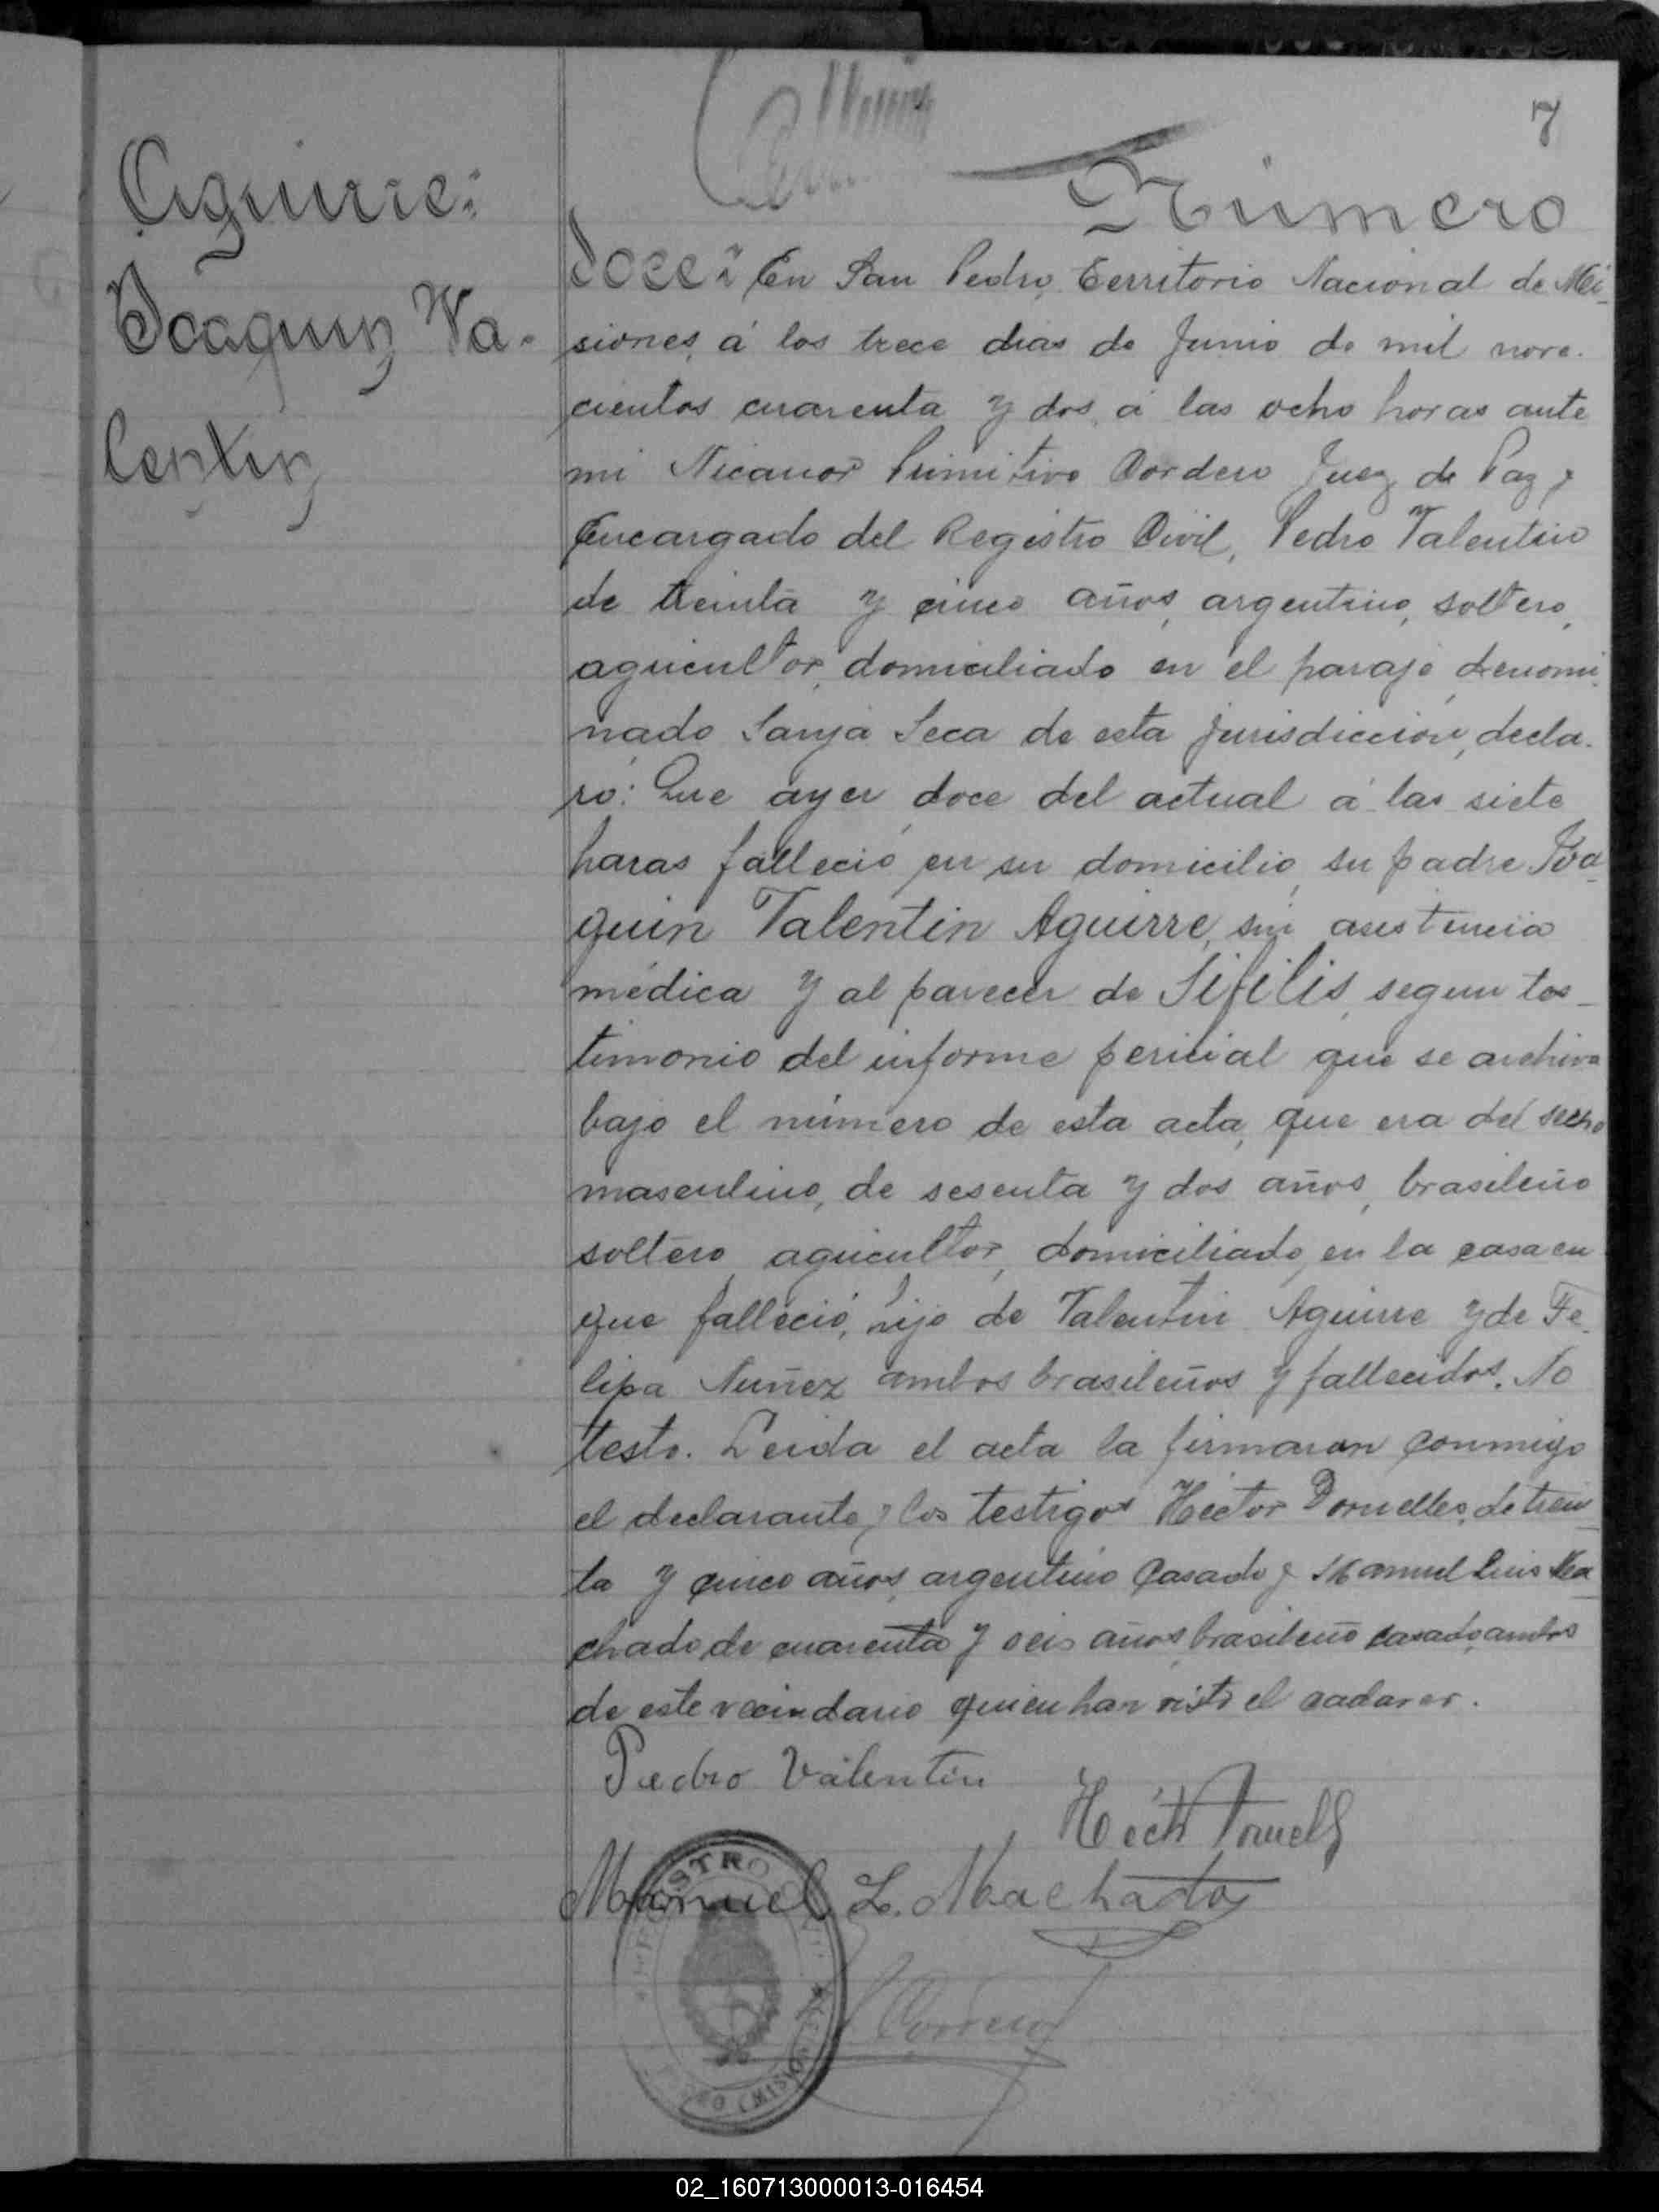 7
Aguirre:
Joaquin Va-
lentin
Número
doce: En San Pedro, Territorio Nacional de Mi-
siones, á los trece dias de Junio de mil nove-
cientos cuarenta y dos, á las ocho horas ante
mi Nicanor Primitivo Cordero Juez de Paz y
Encargado del Registro Civil, Pedro Valentin
de treinta y cinco años, argentino, soltero,
agricultor, domiciliado en el paraje denomi-
nado Sanja Seca de esta jurisdiccion, decla-
ró: Que ayer doce del actual á las siete
horas falleció en su domicilio, su padre Joa-
quin Valentin Aguirre, sin asistencia
médica y al parecer de Sifilis, segun tes-
timonio del informe pericial que se archiva
bajo el número de esta acta, que era del secso
masculino, de sesenta y dos años, brasileño
soltero, agricultor, domiciliado en la casa en
que falleció, hijo de Valentin Aguirre y de Fe-
lipa Nuñez ambos brasileños y fallecidos. No
testo. Leida el acta la firmaron conmigo
el declarante y los testigos Héctor Dornelles, de trein-
ta y cinco años, argentino casado y Manuel Luis Ma-
chado, de cuarenta y seis años, brasileño casado, ambos
de este vecindario quien han visto el cadaver.
Pedro Valentin
Héctor Dornelles
Manuel L. Machado
Cordero
REGISTRO CIVIL
(MISIONES)
02_160713000013-016454